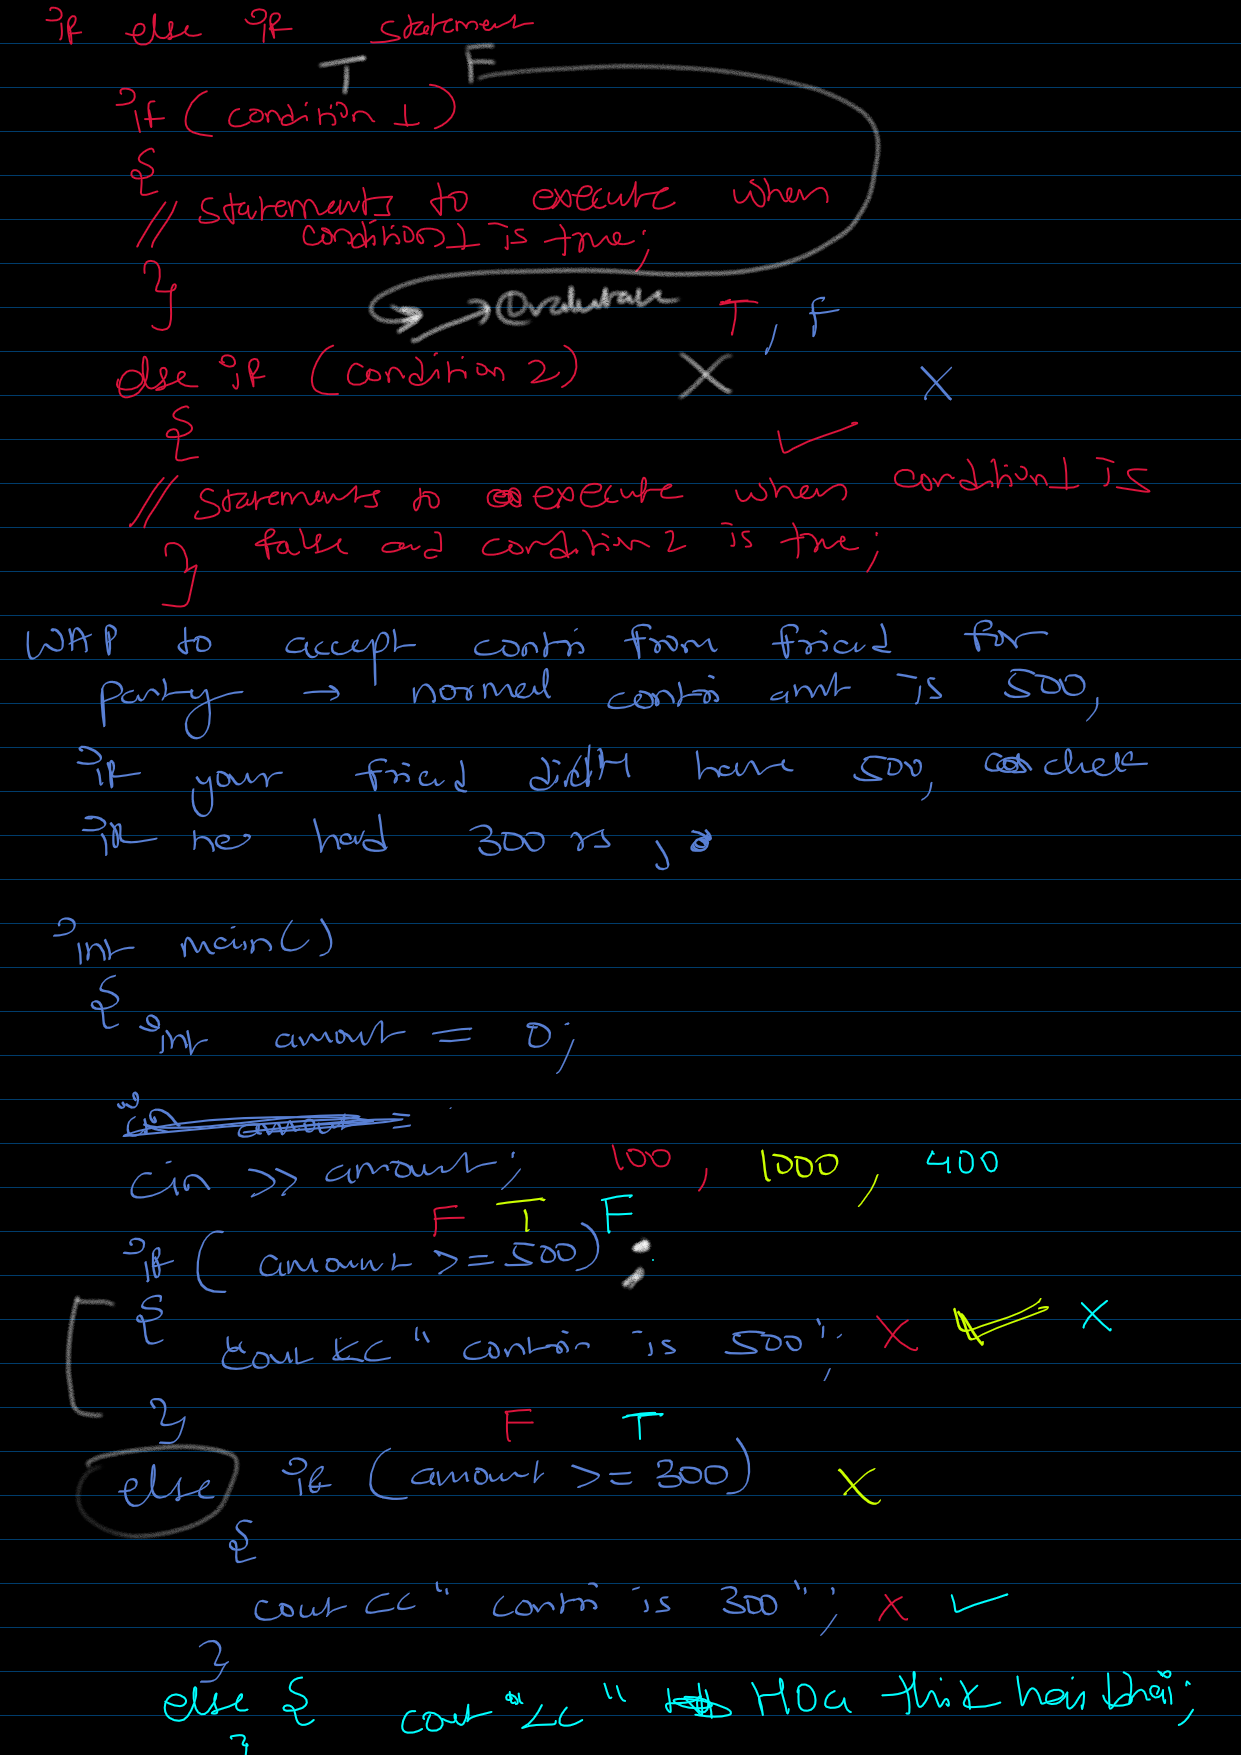 if else if statement
T F
if (condition 1)
{
// statements to execute when
condition1 is true;
}
→ evaluate T, F
else if (condition 2) X X
{ ✓
// statements to execute when condition1 is
false and condition2 is true;
}
WAP to accept contri from friend for
party → normal contri amt is 500,
if your friend didn't have 500, check
if he had 300 rs,
int main()
{
int amount = 0;
cin >> amount; 100, 1000, 400
F T F
if (amount >= 500) ;
{
cout << "contri is 500"; X ✓ X
}
F T
else if (amount >= 300) X
{
cout << "contri is 300"; X ✓
}
else { cout << " Hoa thik hai bhai;
}